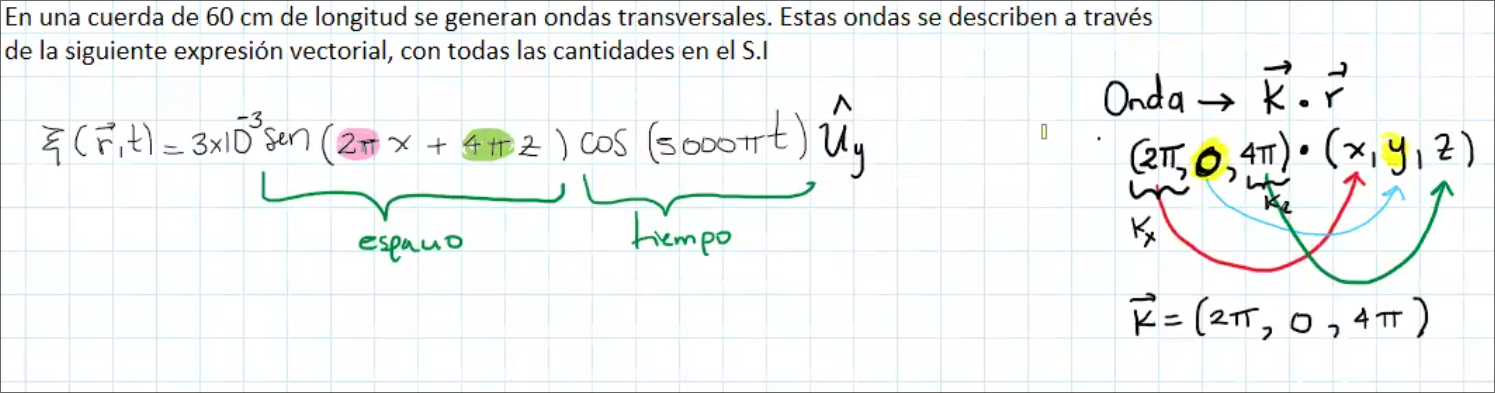 En una cuerda de 60 cm de longitud se generan ondas transversales. Estas ondas se describen a través
de la siguiente expresión vectorial, con todas las cantidades en el S.I
Onda → K⃗ · r⃗
ξ(r⃗,t) = 3x10⁻³ sen (2π x + 4π z) cos (5000πt) Û_y
(2π, 0, 4π) · (x, y, z)
K_x K_z
espacio tiempo
K⃗ = (2π, 0, 4π)